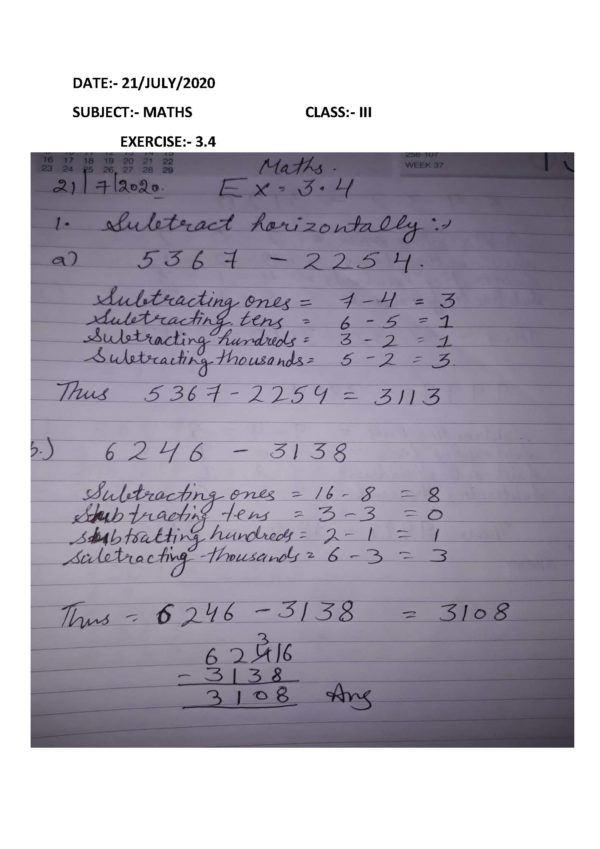 DATE:- 21/JULY/2020
SUBJECT:- MATHS CLASS:- III
EXERCISE:- 3.4
16 17 18 19 20 21 22
23 24 25 26 27 28 29
WEEK 37
Maths.
21/7/2020. Ex = 3.4
1. Subtract horizontally :-
a) 5367 - 2254.
Subtracting ones = 7 - 4 = 3
Subtracting tens = 6 - 5 = 1
Subtracting hundreds = 3 - 2 = 1
Subtracting thousands = 5 - 2 = 3.
Thus 5367 - 2254 = 3113
b.) 6246 - 3138
Subtracting ones = 16 - 8 = 8
Subtracting tens = 3 - 3 = 0
Subtracting hundreds = 2 - 1 = 1
Subtracting thousands = 6 - 3 = 3
Thus = 6246 - 3138 = 3108
3
62416
- 3138
3108 Ans